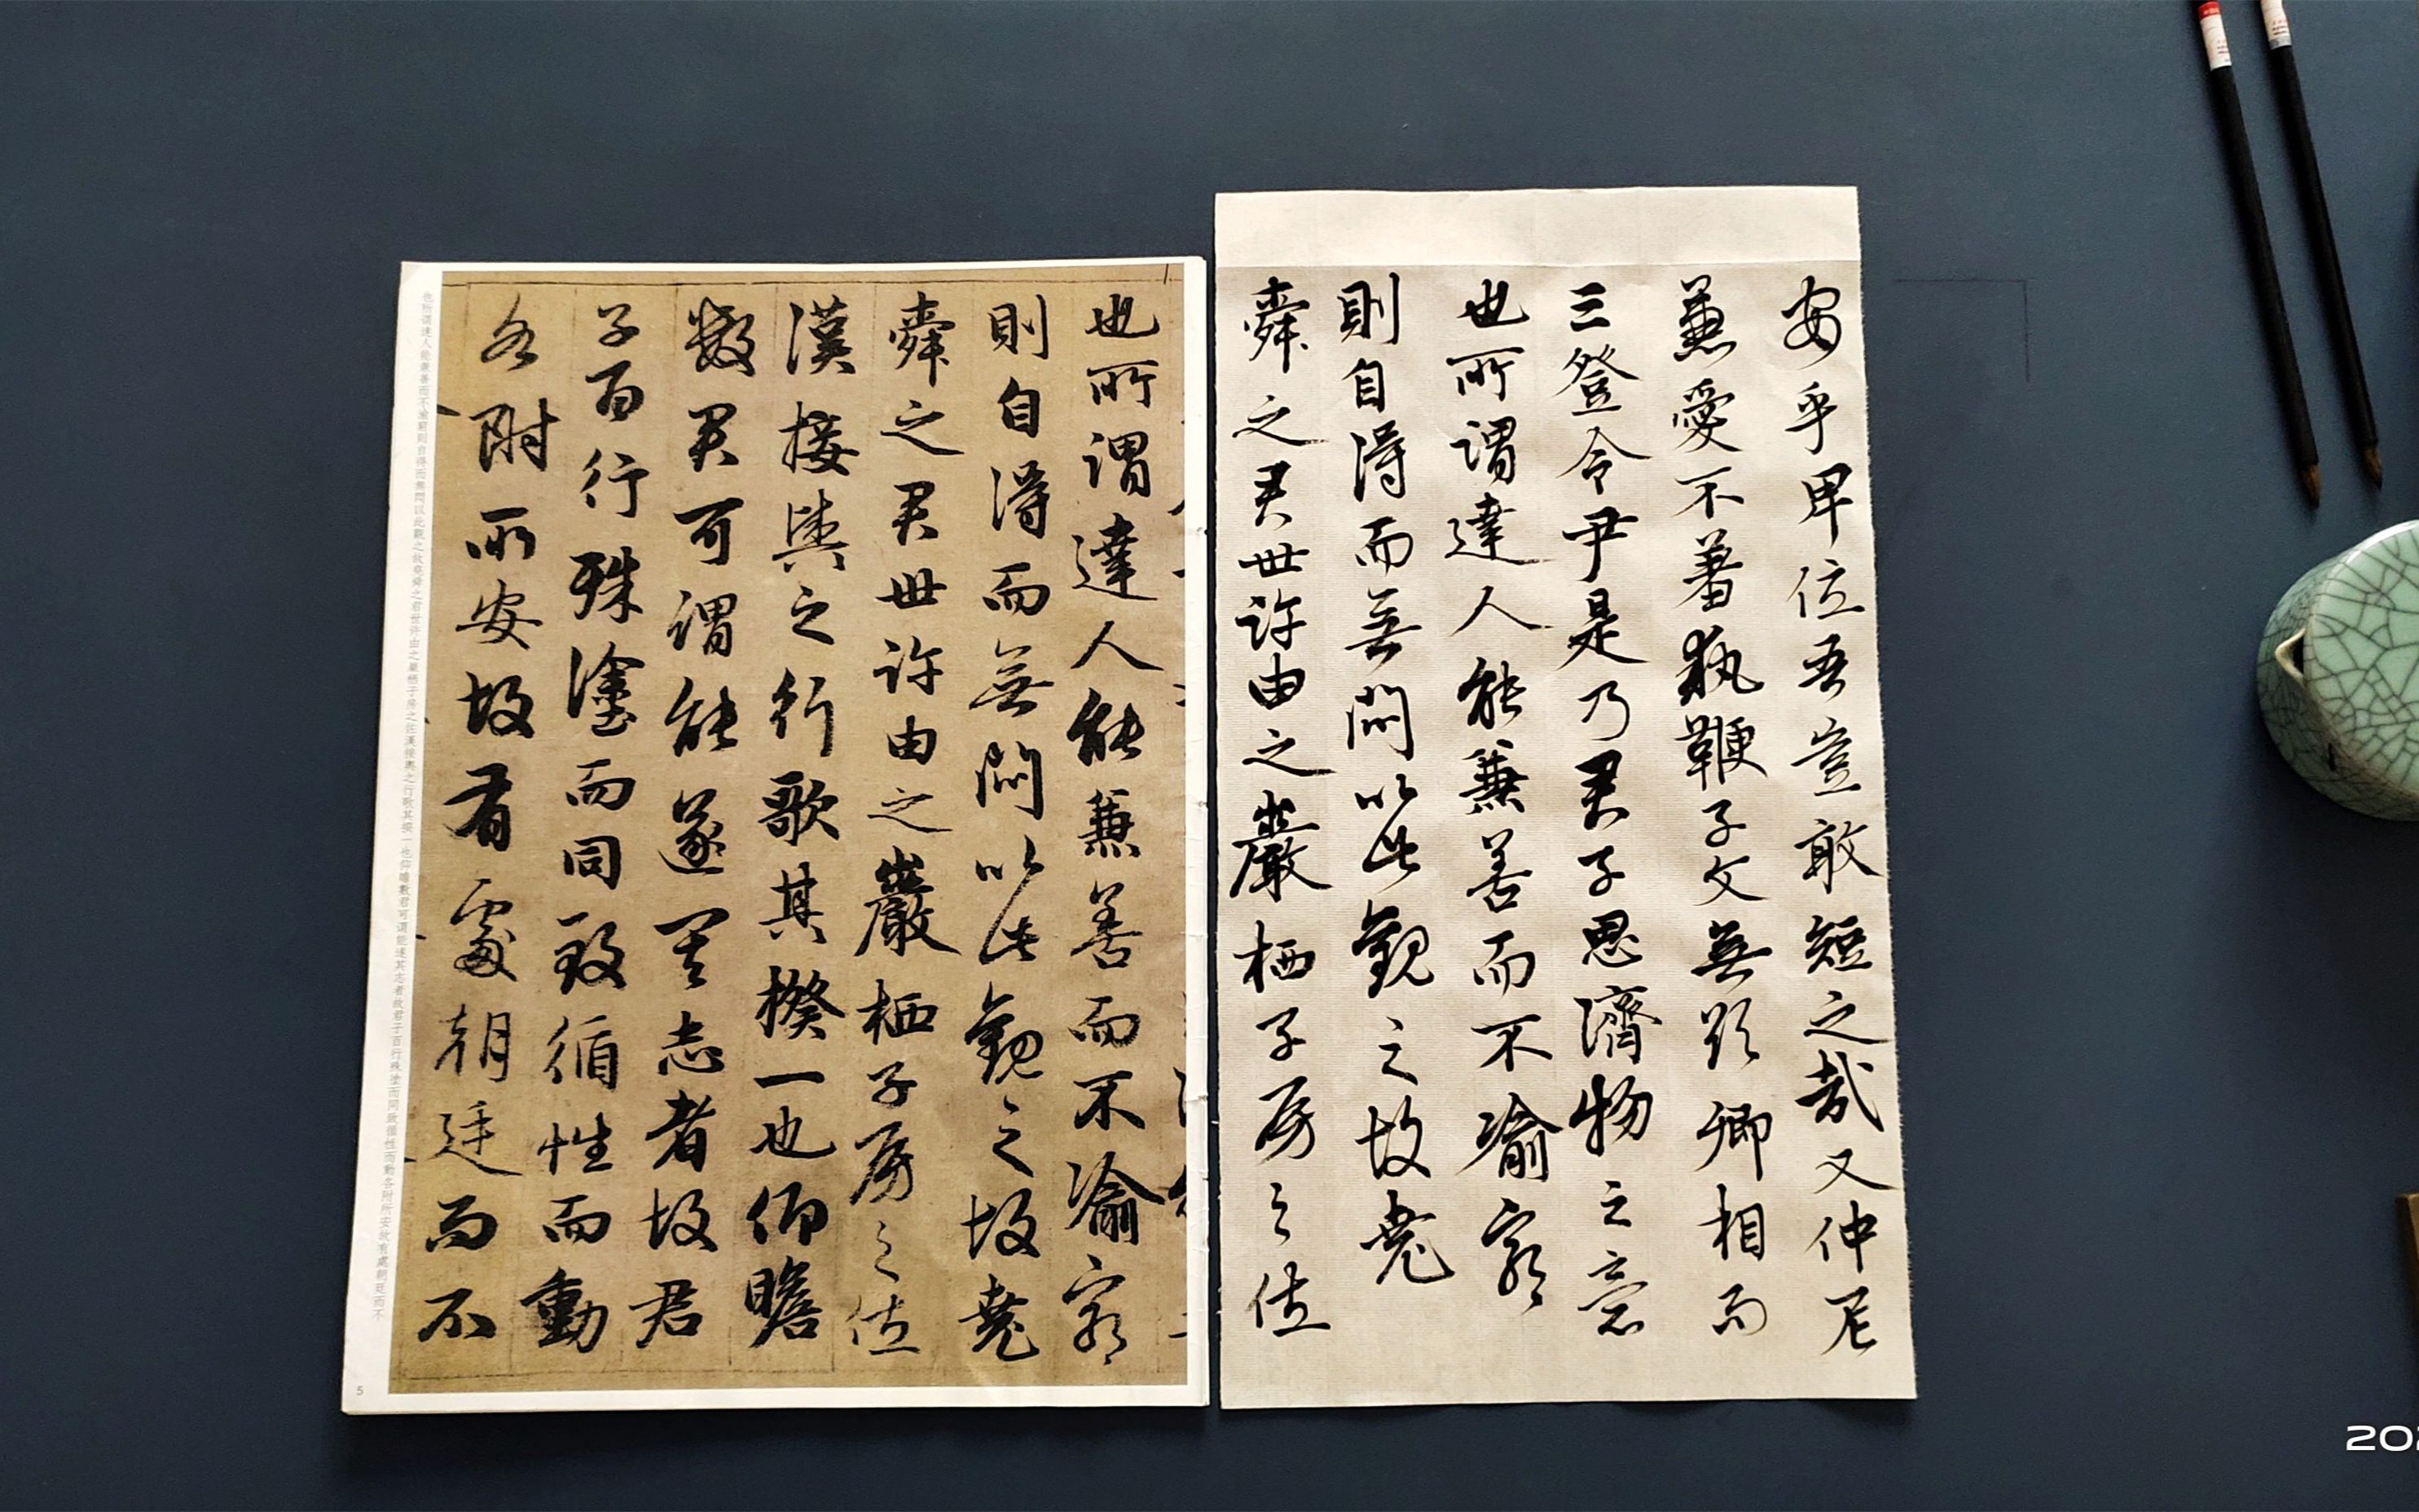 安乎卑位吾豈敢短之哉又仲尼
兼愛不羞執鞭子文無欲卿相而
三登令尹是乃君子思濟物之意
也所謂達人能兼善而不渝窮
則自得而無悶以此觀之故堯
舜之君世許由之巖栖子房之佐
也所謂達人能兼善而不渝窮
則自得而無悶以此觀之故堯
舜之君世許由之巖栖子房之佐
漢接輿之行歌其揆一也仰瞻
數君可謂能遂其志者故君
子百行殊塗而同致循性而動
各附所安故有處朝廷而不
也所謂達人能兼善而不渝窮則自得而無悶以此觀之故堯舜之君世許由之巖栖子房之佐漢接輿之行歌其揆一也仰瞻數君可謂能遂其志者故君子百行殊塗而同致循性而動各附所安故有處朝廷而不
5